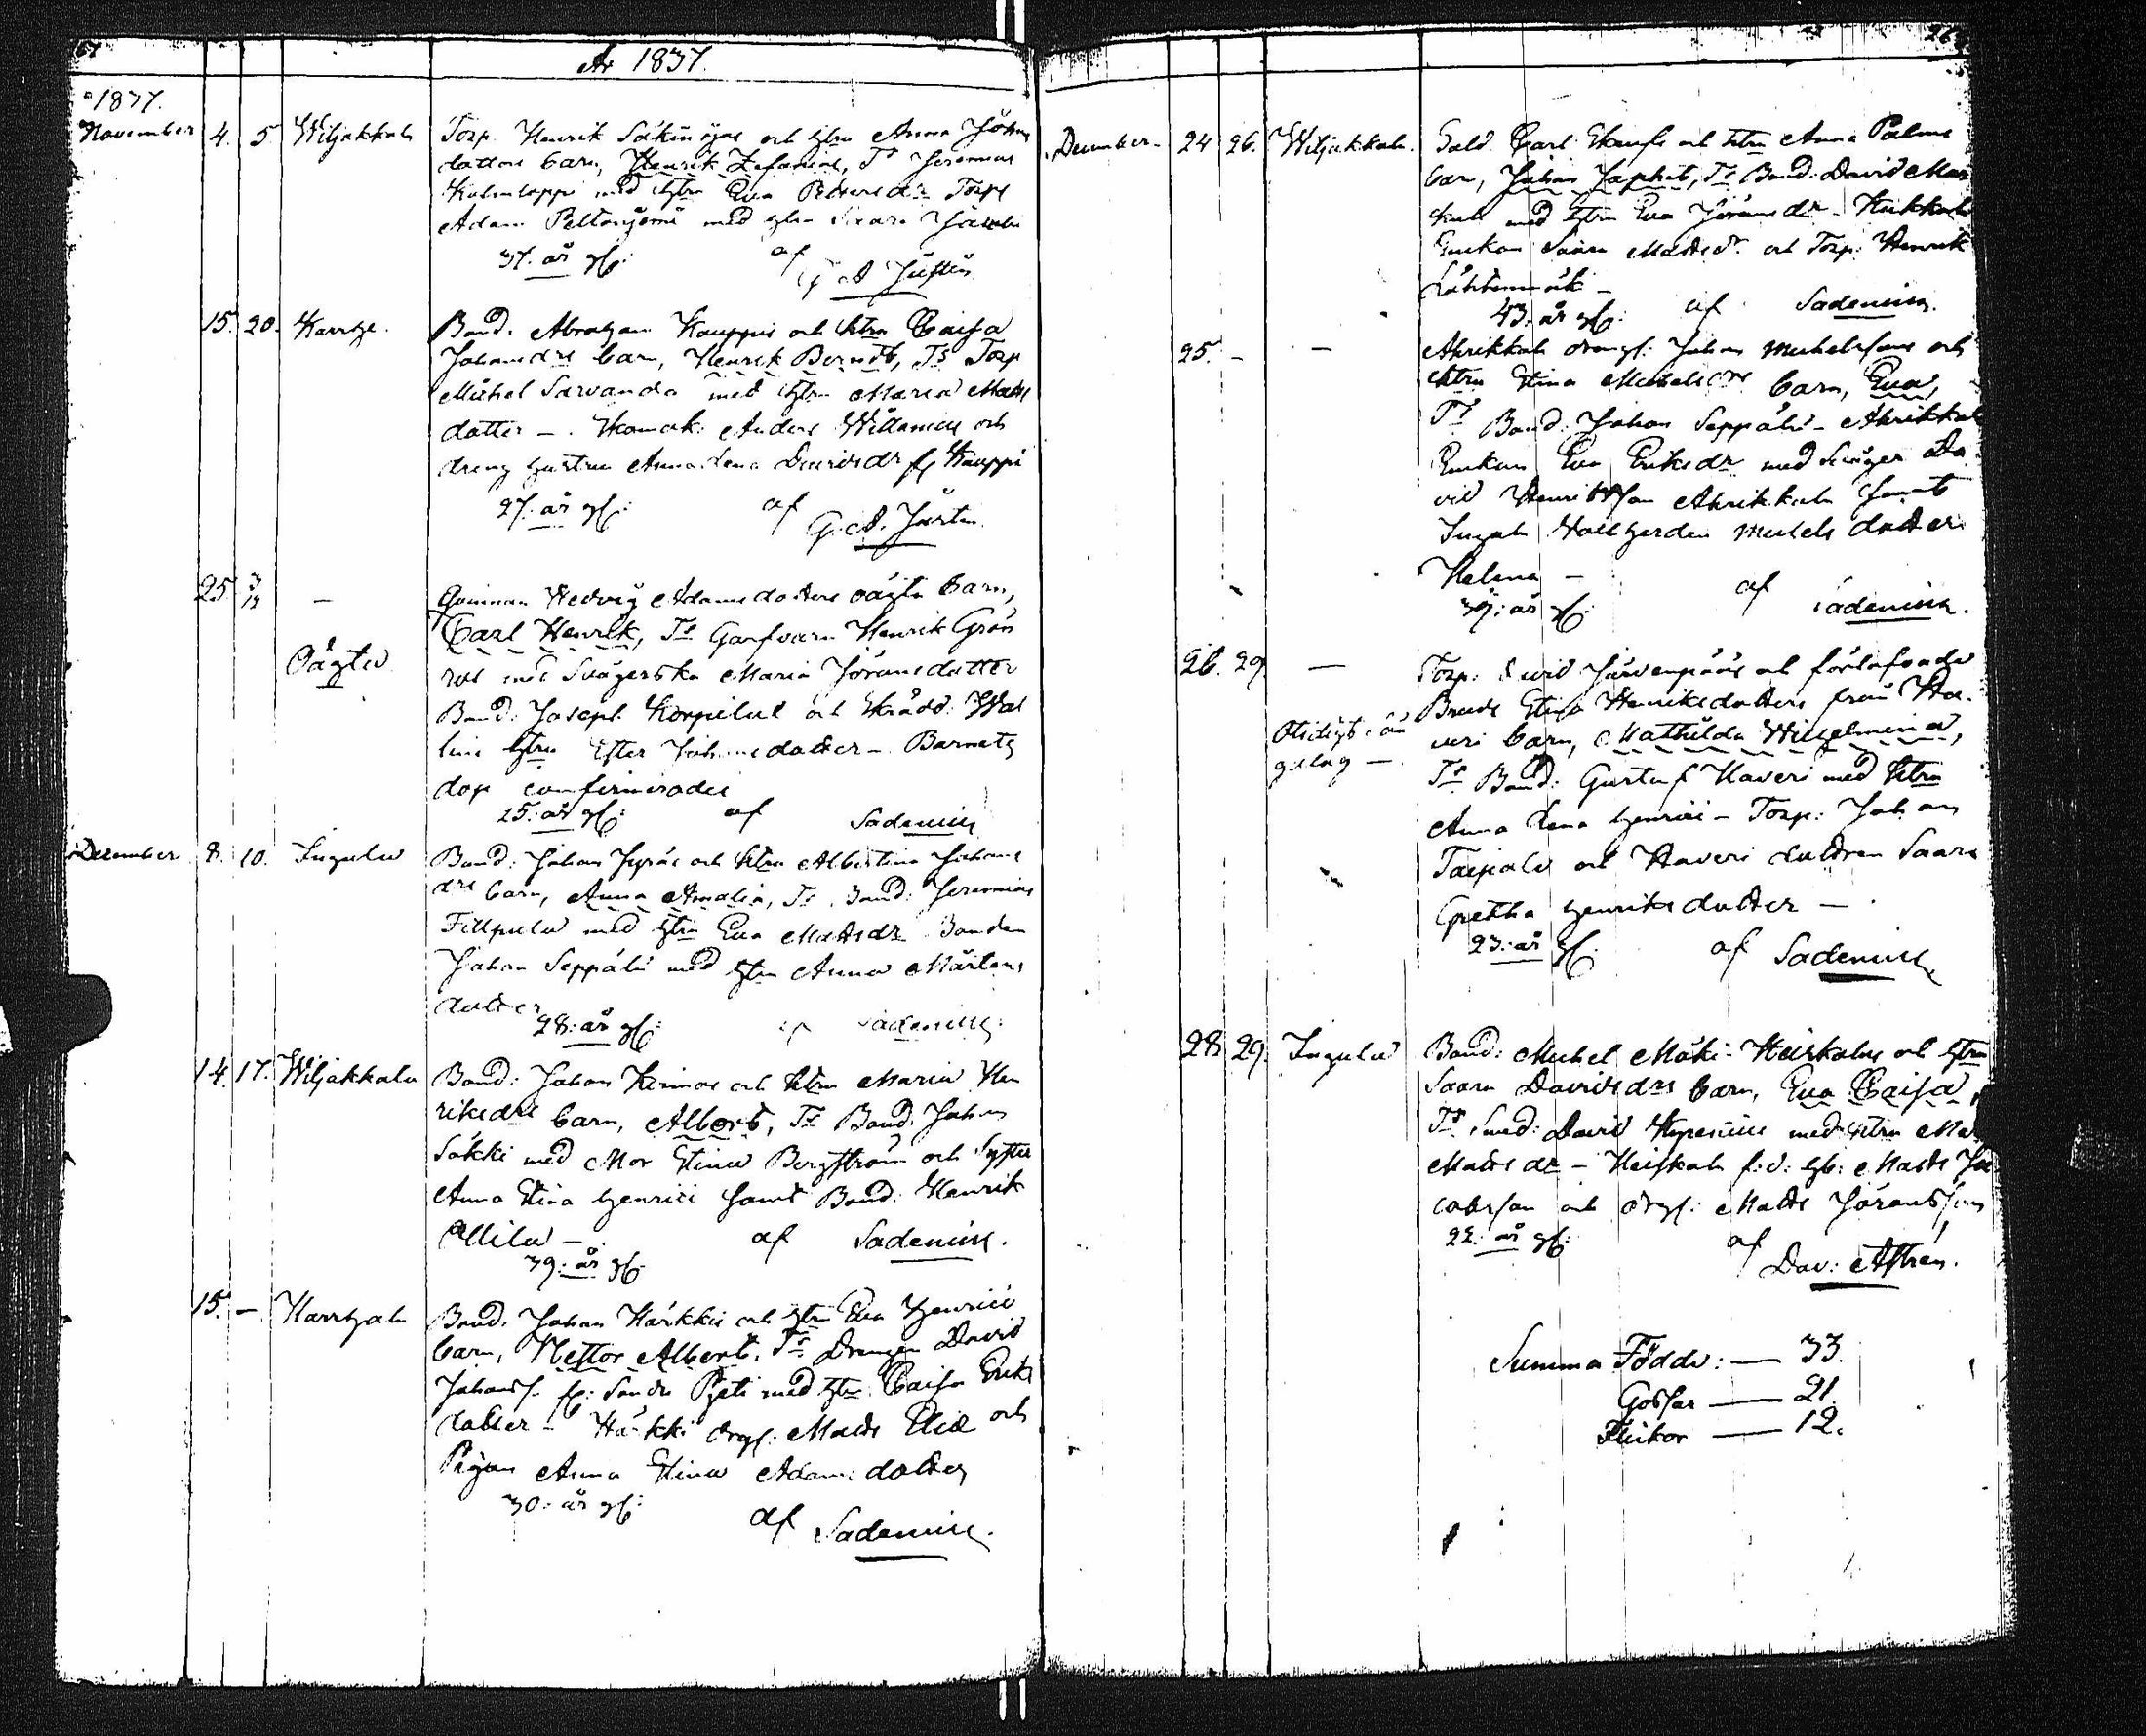 År 1837.
1837.
November 4. 5. Wiljakkala
Torp. Henrik Säkinojas och hstru Anna Johans
dotters barn, Henrik Zefanias, Ts Jeremias
med hstru Eva Petersdr Torp
Adam Peltoniemi med hstru Saara Jacobs
37. år gl: af
G A Justén
15. 20. Karrhe.
Bond. Abraham Kauppis och hstru Caisa
Johansdrs barn, Henrik Berndt, Ts Torp
Michel Sarvanda med hstru Maria Matts
dotter —. Anders Willanen och
dreng hustrun Anna Lena Davidsdr fr Kauppi
27. år gl: af G. A. Justén.
25. 3/12 —
Oägta
Qvinnan Hedvig Adamsdotters oägta barn,
Carl Henrik, Ts Garfvarn Henrik Grön
roos med Svägerska Maria Jöransdotter
Bond: Joseph Korpilul och Skrädd: Wal
lins hstru Ester Johansdotter — Barnets
dop confirmerades
25: år gl: af Sadenius
December 8. 10. Ingala
Bond: Johan Jyräs och hstru Albertina Johans
drs barn, Anna Amalia, Ts Bond: Jeremias
Fillpula med hstru Eva Mattsdr Bonden
Johan Seppälä med hstru Anna Mårtens
dotter
28: år gl: af Sadenius.
14. 17. Wiljakkala
Bond: Johan Kinnas och hstru Maria Hen
riksdrs barn, Albert, Ts Bond. Johan
Säkki med Mor Stina Bergström och Syster
Anna Stina Henrici samt Bond: Henrik
Ollila — af Sadenius.
39: år gl:
15. — Harrhala
Bond. Johan Härkkis och hstru Eva Henrici
barn, Nestor Albert, Ts Drengen David
Johansf. fr: Pyeti med hstru Caisa Eriks
dotter — Härkki drgs: Matts Elis och
Pigan Anna Stina Adamsdotter
30: år gl:
af Sadenius.
December. 24 26. Wiljakkala.
Sold Carl och hstru Anna Palms
barn, Johan Japhet, Ts Bond: David Mar
kula med hstru Eva Jöransdr — Kukkola
Enkan Saara Mattsdr och Torp: Henrik
Lähteenmäki —
43: år gl: af Sadenius.
25. — —
Ahrikkala drengs: Johan Michelssons och
hstru Stina Michelsdrs barn, Eva,
Ts Bond: Johan Seppälä — Ahrikkala
Enkan Eva Eriksdr med Svåger Da
vid Henriksson Ahrikkala samt
Ingala Vallherden Michels dotter
Helena —
39: år gl: af Sadenius.
26. 29. —
Otidigt sän
gelag —
Torp: David Järvenpääs och förlofvade
Brud Stina Henriksdotters från Ha
veri barn, Mathilda Wilhelmina,
Ts Bond: Gustaf Haveri med hstru
Anna Lena Henrici — Torp: Johan
Taipale och Haveri dottren Saara
Gretha Henriksdotter —
23: år gl: af Sadenius
28. 29. Ingala
Bond: Michel Mäki-Heiskalas och hstru
Saara Davidsdrs barn, Eva Caisa,
Ts Smed: David med hstru Ma
Mattsdr — Heiskala f:d: hb: Matts Ja
cobsson och drgs: Matts Jöransson
22: år gl: af
Dav: Astrén.
Summa Födde: — 33.
Gossar — 21.
Flickor — 12.